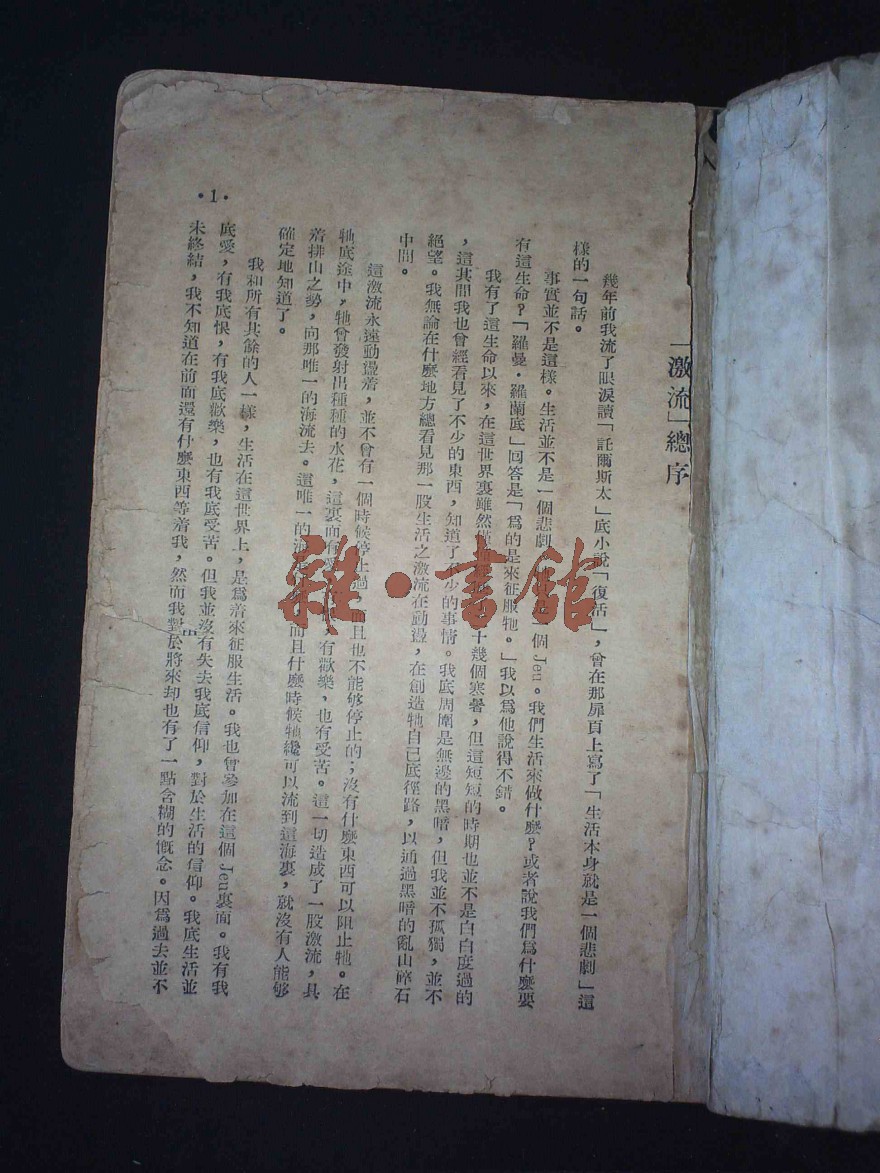 「激流」總序
幾年前我流了眼淚讀「託爾斯太」底小說「復活」，曾在那扉頁上寫了「生活本身就是一個悲劇」這
樣的一句話。
事實並不是這樣。生活並不是一個悲劇 一個Jeu。我們生活來做什麼？或者說我們爲什麼要
有這生命？「羅曼・羅蘭底」回答是「爲的是來征服牠。」我以爲他說得不錯。
我有了這生命以來，在這世界裏雖然僅 十幾個寒暑，但這短短的時期也並不是白白度過的
，這其間我也曾經看見了不少的東西，知道了不少的事情。我底周圍是無邊的黑暗，但我並不孤獨，並不
絕望。我無論在什麼地方總看見那一股生活之激流在動盪，在創造牠自己底徑路，以通過黑暗的亂山碎石
中間。
這激流永遠動盪着，並不曾有一個時候停止過 而且也不能够停止的；沒有什麼東西可以阻止牠。在
牠底途中，牠曾發射出種種的水花，這裏面有愛 有歡樂，也有受苦。這一切造成了一股激流，具
着排山之勢，向那唯一的海流去。這唯一的海是 而且什麼時候牠纔可以流到這海裏，就沒有人能够
確定地知道了。
我和所有其餘的人一樣，生活在這世界上，是爲着來征服生活。我也曾參加在這個Jeu裏面。我有我
底愛，有我底恨，有我底歡樂，也有我底受苦。但我並沒有失去我底信仰，對於生活的信仰。我底生活並
未終結，我不知道在前面還有什麼東西等着我，然而我對於將來却也有了一點含糊的慨念。因爲過去並不
・1・
雜・書館